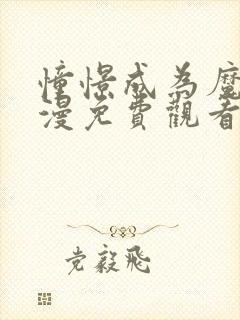 憧憬成為魔
漫免費觀看
党毅飛